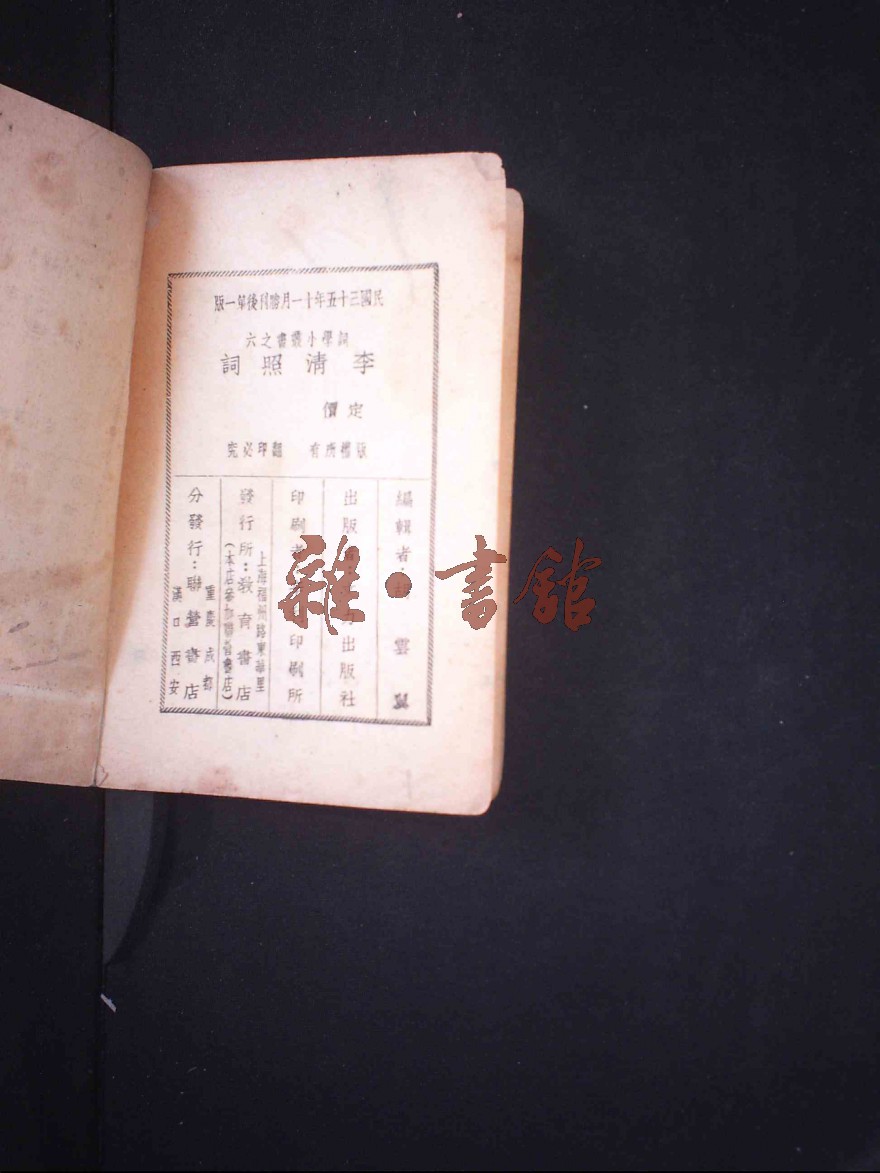 民國三十五年十一月勝利後第一版
詞學小叢書之六
李清照詞
定價
版權所有 翻印必究
編輯者 雲
出版 出版社
印刷者 印刷所
上海福州路東華里
發行所：教育書店
（本店參加聯營書店）
重慶成都
分發行：聯營書店
漢口西安
雜·書館